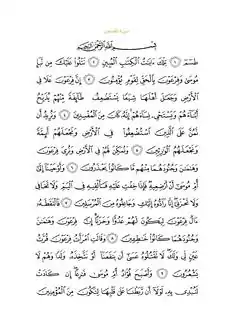 سورة القصص
بِسْمِ اللَّهِ الرَّحْمَٰنِ الرَّحِيمِ
طسٓمٓ ۝١ تِلْكَ ءَايَٰتُ ٱلْكِتَٰبِ ٱلْمُبِينِ ۝٢ نَتْلُوا۟ عَلَيْكَ مِن نَّبَإِ
مُوسَىٰ وَفِرْعَوْنَ بِٱلْحَقِّ لِقَوْمٍ يُؤْمِنُونَ ۝٣ إِنَّ فِرْعَوْنَ عَلَا فِى
ٱلْأَرْضِ وَجَعَلَ أَهْلَهَا شِيَعًا يَسْتَضْعِفُ طَآئِفَةً مِّنْهُمْ يُذَبِّحُ
أَبْنَآءَهُمْ وَيَسْتَحْىِۦ نِسَآءَهُمْ إِنَّهُۥ كَانَ مِنَ ٱلْمُفْسِدِينَ ۝٤ وَنُرِيدُ
أَن نَّمُنَّ عَلَى ٱلَّذِينَ ٱسْتُضْعِفُوا۟ فِى ٱلْأَرْضِ وَنَجْعَلَهُمْ أَئِمَّةً
وَنَجْعَلَهُمُ ٱلْوَٰرِثِينَ ۝٥ وَنُمَكِّنَ لَهُمْ فِى ٱلْأَرْضِ وَنُرِىَ فِرْعَوْنَ
وَهَٰمَٰنَ وَجُنُودَهُمَا مِنْهُم مَّا كَانُوا۟ يَحْذَرُونَ ۝٦ وَأَوْحَيْنَآ إِلَىٰٓ
أُمِّ مُوسَىٰٓ أَنْ أَرْضِعِيهِ فَإِذَا خِفْتِ عَلَيْهِ فَأَلْقِيهِ فِى ٱلْيَمِّ وَلَا تَخَافِى
وَلَا تَحْزَنِىٓ إِنَّا رَآدُّوهُ إِلَيْكِ وَجَاعِلُوهُ مِنَ ٱلْمُرْسَلِينَ ۝٧ فَٱلْتَقَطَهُۥٓ
ءَالُ فِرْعَوْنَ لِيَكُونَ لَهُمْ عَدُوًّا وَحَزَنًا إِنَّ فِرْعَوْنَ وَهَٰمَٰنَ
وَجُنُودَهُمَا كَانُوا۟ خَٰطِـِٔينَ ۝٨ وَقَالَتِ ٱمْرَأَتُ فِرْعَوْنَ قُرَّتُ
عَيْنٍ لِّى وَلَكَ لَا تَقْتُلُوهُ عَسَىٰٓ أَن يَنفَعَنَآ أَوْ نَتَّخِذَهُۥ وَلَدًا وَهُمْ لَا
يَشْعُرُونَ ۝٩ وَأَصْبَحَ فُؤَادُ أُمِّ مُوسَىٰ فَٰرِغًا إِن كَادَتْ
لَتُبْدِى بِهِۦ لَوْلَآ أَن رَّبَطْنَا عَلَىٰ قَلْبِهَا لِتَكُونَ مِنَ ٱلْمُؤْمِنِينَ